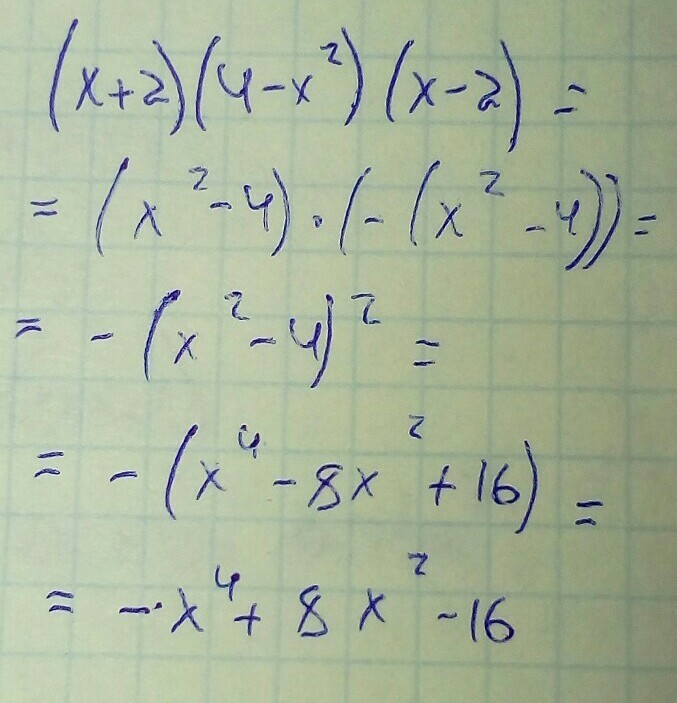 (x+2)(4-x²)(x-2)=
=(x²-4)·(-(x²-4))=
=-(x²-4)²=
=-(x⁴-8x²+16)=
=-x⁴+8x²-16